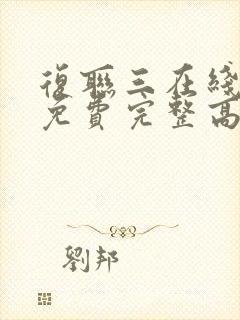 復聯三在綫
免費完整高
劉邦